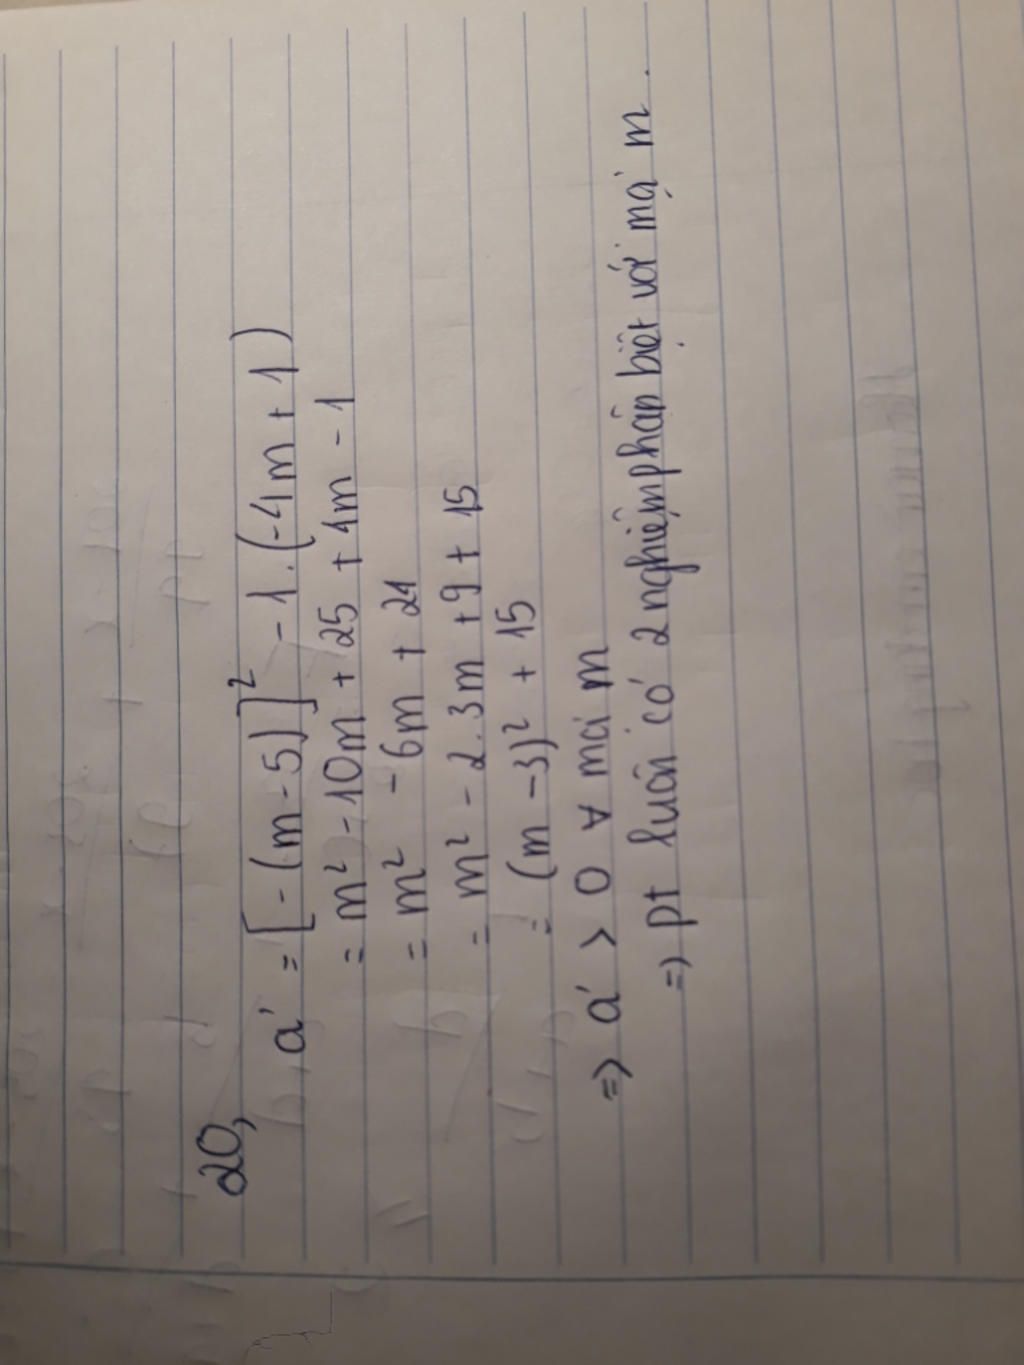 20,
a' = [-(m-5)]² - 1.(-4m+1)
= m² - 10m + 25 + 4m - 1
= m² - 6m + 24
= m² - 2.3m + 9 + 15
= (m-3)² + 15
=> a' > 0 ∀ mọi m
=> pt luôn có 2 nghiệm phân biệt với mọi m.